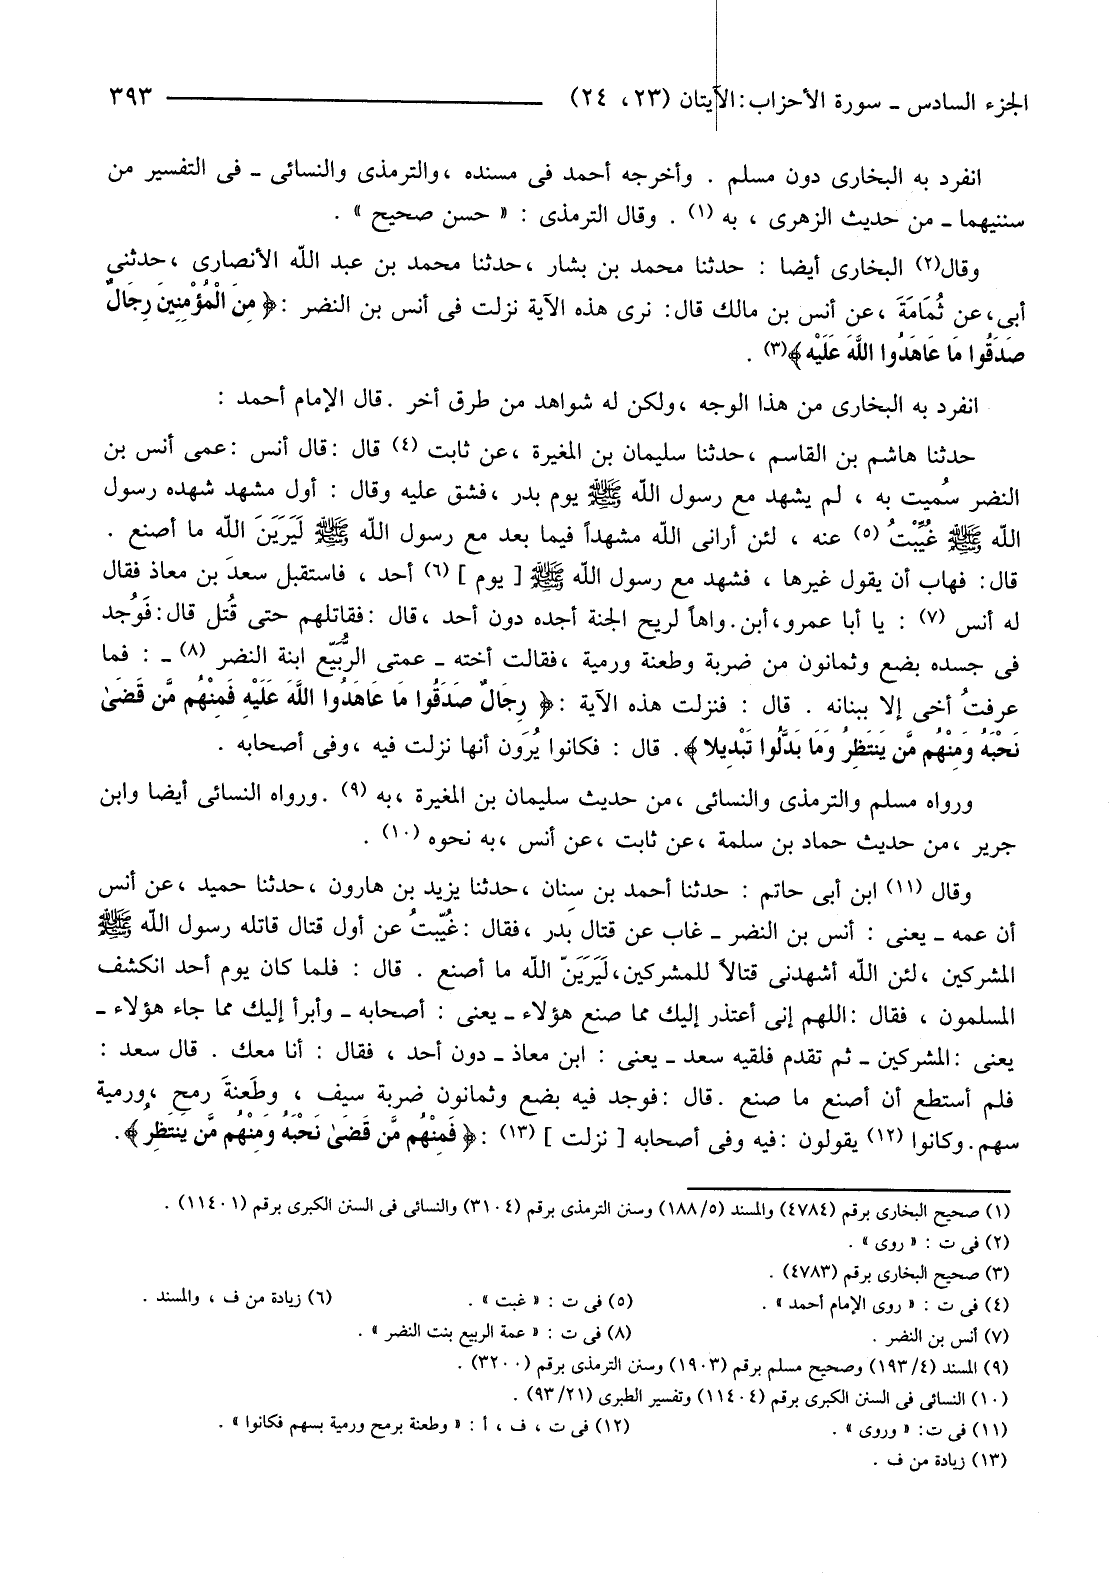 الجزء السادس ـ سورة الأحزاب: الآيتان (٢٣، ٢٤) ٣٩٣
انفرد به البخارى دون مسلم . وأخرجه أحمد فى مسنده ، والترمذى والنسائى ـ فى التفسير من
سننيهما ـ من حديث الزهرى ، به (١) . وقال الترمذى : « حسن صحيح » .
وقال(٢) البخارى أيضا : حدثنا محمد بن بشار ، حدثنا محمد بن عبد الله الأنصارى ، حدثنى
أبى، عن ثُمَامَةَ ، عن أنس بن مالك قال: نرى هذه الآية نزلت فى أنس بن النضر : ﴿ مِنَ الْمُؤْمِنِينَ رِجَالٌ
صَدَقُوا مَا عَاهَدُوا اللَّهَ عَلَيْهِ ﴾(٣) .
انفرد به البخارى من هذا الوجه ، ولكن له شواهد من طرق أخر . قال الإمام أحمد :
حدثنا هاشم بن القاسم ، حدثنا سليمان بن المغيرة ، عن ثابت (٤) قال : قال أنس : عمى أنس بن
النضر سُميت به ، لم يشهد مع رسول الله ﷺ يوم بدر ، فشق عليه وقال : أول مشهد شهده رسول
الله ﷺ غُيِّبْتُ (٥) عنه ، لئن أرانى الله مشهداً فيما بعد مع رسول الله ﷺ لَيَرَيَنَ الله ما أصنع .
قال: فهاب أن يقول غيرها ، فشهد مع رسول الله ﷺ [ يوم ] (٦) أحد ، فاستقبل سعدَ بن معاذ فقال
له أنس (٧) : يا أبا عمرو، أبن. واهاً لريح الجنة أجده دون أحد ، قال : فقاتلهم حتى قُتل قال: فَوُجد
فى جسده بضع وثمانون من ضربة وطعنة ورمية ، فقالت أخته ـ عمتى الرُّبَيّع ابنة النضر (٨) ـ : فما
عرفتُ أخى إلا ببنانه . قال : فنزلت هذه الآية : ﴿ رِجَالٌ صَدَقُوا مَا عَاهَدُوا اللَّهَ عَلَيْهِ فَمِنْهُم مَّن قَضَىٰ
نَحْبَهُ وَمِنْهُم مَّن يَنتَظِرُ وَمَا بَدَّلُوا تَبْدِيلا ﴾. قال : فكانوا يُرَون أنها نزلت فيه ، وفى أصحابه .
ورواه مسلم والترمذى والنسائى ، من حديث سليمان بن المغيرة ، به (٩) . ورواه النسائى أيضا وابن
جرير ، من حديث حماد بن سلمة ، عن ثابت ، عن أنس ، به نحوه (١٠) .
وقال (١١) ابن أبى حاتم : حدثنا أحمد بن سِنان ، حدثنا يزيد بن هارون ، حدثنا حميد ، عن أنس
أن عمه ـ يعنى : أنس بن النضر ـ غاب عن قتال بدر ، فقال : غُيّبتُ عن أول قتال قاتله رسول الله ﷺ
المشركين ، لئن الله أشهدنى قتالاً للمشركين، لَيَرَيَنّ الله ما أصنع . قال : فلما كان يوم أحد انكشف
المسلمون ، فقال : اللهم إنى أعتذر إليك مما صنع هؤلاء ـ يعنى : أصحابه ـ وأبرأ إليك مما جاء هؤلاء ـ
يعنى : المشركين ـ ثم تقدم فلقيه سعد ـ يعنى : ابن معاذ ـ دون أحد ، فقال : أنا معك . قال سعد :
فلم أستطع أن أصنع ما صنع . قال : فوجد فيه بضع وثمانون ضربة سيف ، وطَعنةَ رمحٍ ، ورمية
سهم. وكانوا (١٢) يقولون : فيه وفى أصحابه [ نزلت ] (١٣) : ﴿ فَمِنْهُم مَّن قَضَىٰ نَحْبَهُ وَمِنْهُم مَّن يَنتَظِرُ ﴾.
(١) صحيح البخارى برقم (٤٧٨٤) والمسند (١٨٨/٥) وسنن الترمذى برقم (٣١٠٤) والنسائى فى السنن الكبرى برقم (١١٤٠١) .
(٢) فى ت : « روى » .
(٣) صحيح البخارى برقم (٤٧٨٣) .
(٤) فى ت : « روى الإمام أحمد » . (٥) فى ت : « غبت » . (٦) زيادة من ف ، والمسند .
(٧) أنس بن النضر . (٨) فى ت : « عمة الربيع بنت النضر » .
(٩) المسند (١٩٣/٤) وصحيح مسلم برقم (١٩٠٣) وسنن الترمذى برقم (٣٢٠٠) .
(١٠) النسائى فى السنن الكبرى برقم (١١٤٠٤) وتفسير الطبرى (٩٣/٢١) .
(١١) فى ت: « وروى » . (١٢) فى ت ، ف ، أ : « وطعنة برمح ورمية بسهم فكانوا » .
(١٣) زيادة من ف .